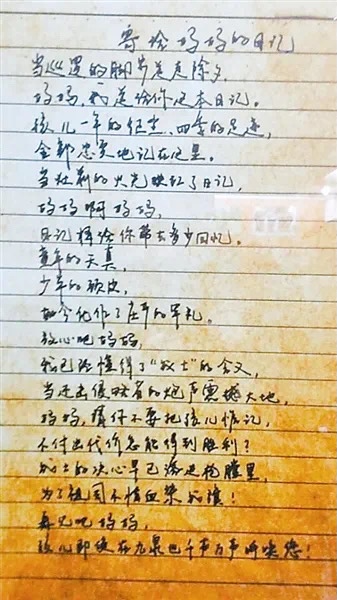 寄给妈妈的日记
当巡逻的脚步走除夕，
妈妈，我送给你这本日记。
孩儿一年的纪念、四季的足迹，
全部忠实地记在这里。
当灶前的火光映红了日记，
妈妈啊妈妈，
日记将给你带去多少回忆。
童年的天真，
少年的顽皮，
如今化作了庄严的军礼。
放心吧妈妈，
我已经懂得了“战士”的含义，
当还击侵略者的炮声震撼大地，
妈妈，请你不要把孩儿惦记，
不付出代价怎能得到胜利？
战士的决心早已溶进枪膛里，
为了祖国不惜血染的旗！
再见吧妈妈，
孩儿即使在九泉也千声万声呼唤您！